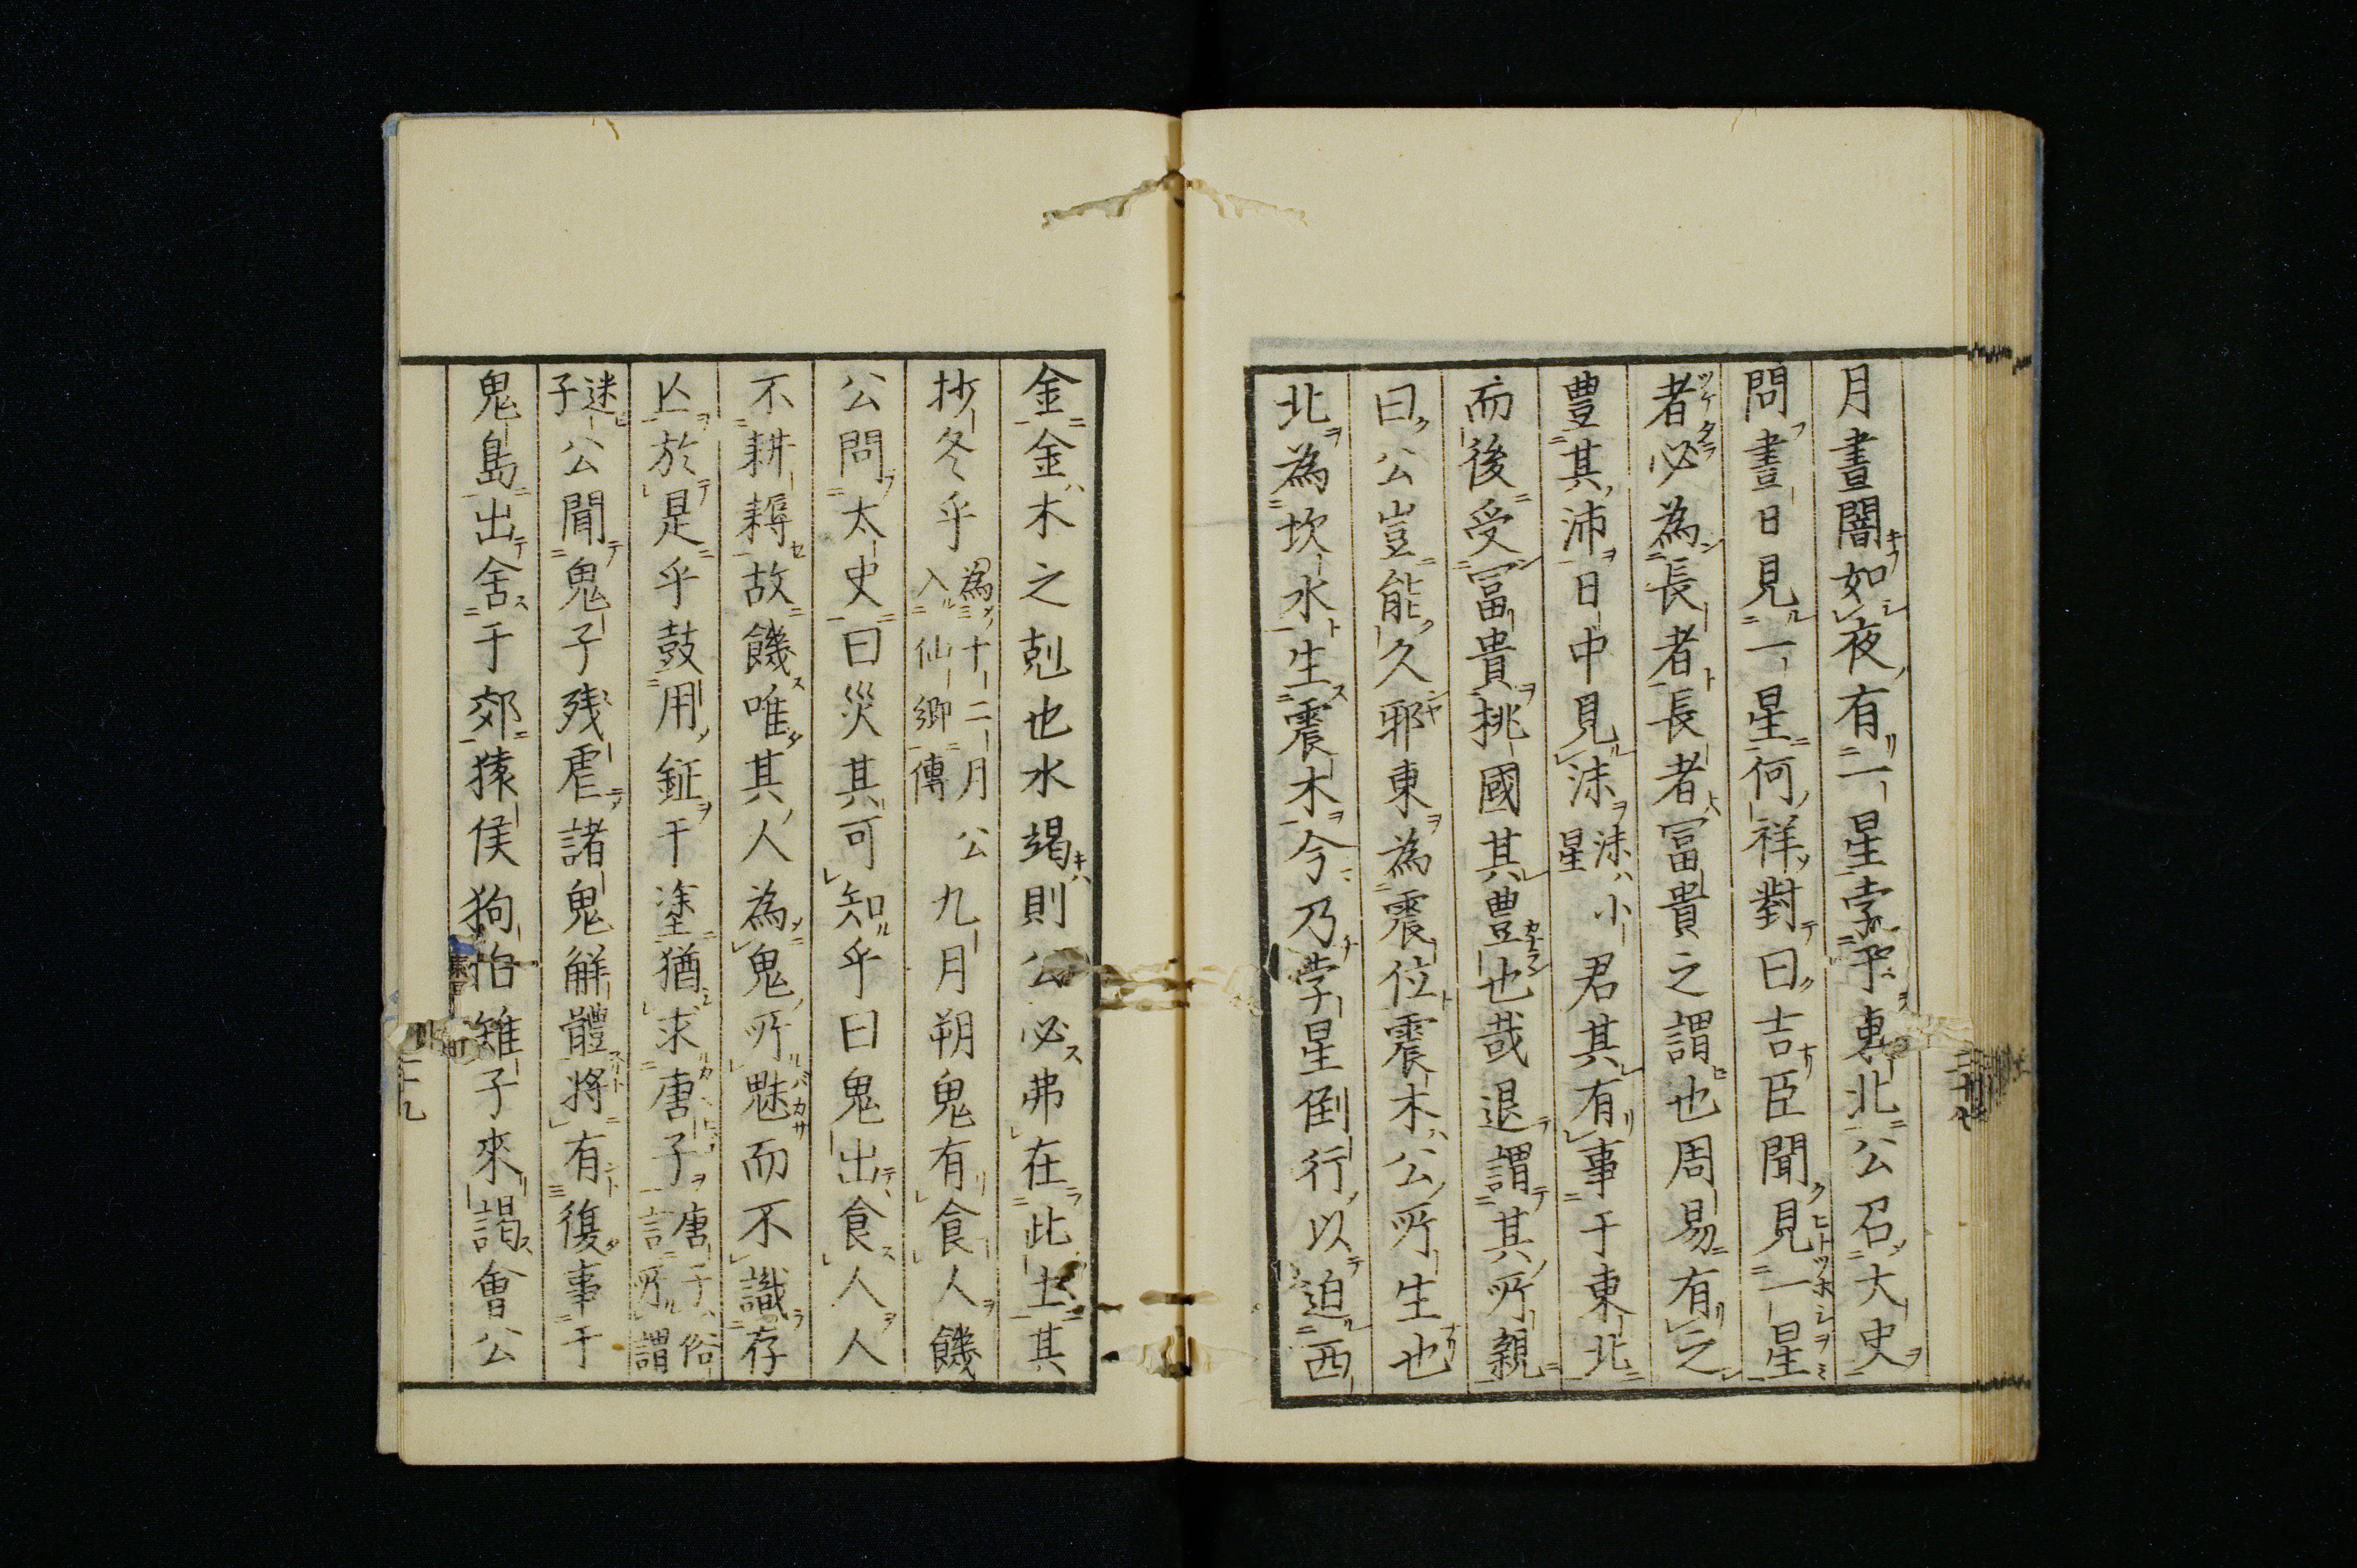 月晝闇如夜有一星孛乎東北公召大史
問晝日見一星何祥對曰吉臣聞見一星
者必為長者長者冨貴之謂也周易有之
豊其沛日中見沫沫小星君其有事于東北
而後受冨貴挑國其豊也哉退謂其所親
曰公豈能久耶東為震位震木公所生也
北為坎水生震木今乃孛星倒行以迫西
金金木之剋也水竭則公必弗在此土其
抄冬乎為十二月公入仙郷傳九月朔鬼有食人饑
公問太史曰災其可知乎曰鬼出食人人
不耕耨故饑唯其人為鬼所魅而不識存
亾於是乎鼓用鉦于塗猶求唐子唐子俗言所謂
迷子公聞鬼子残虐諸鬼解體將有復事于
鬼島出舍于郊猿侯狗怡雉子來謁會公
二十九